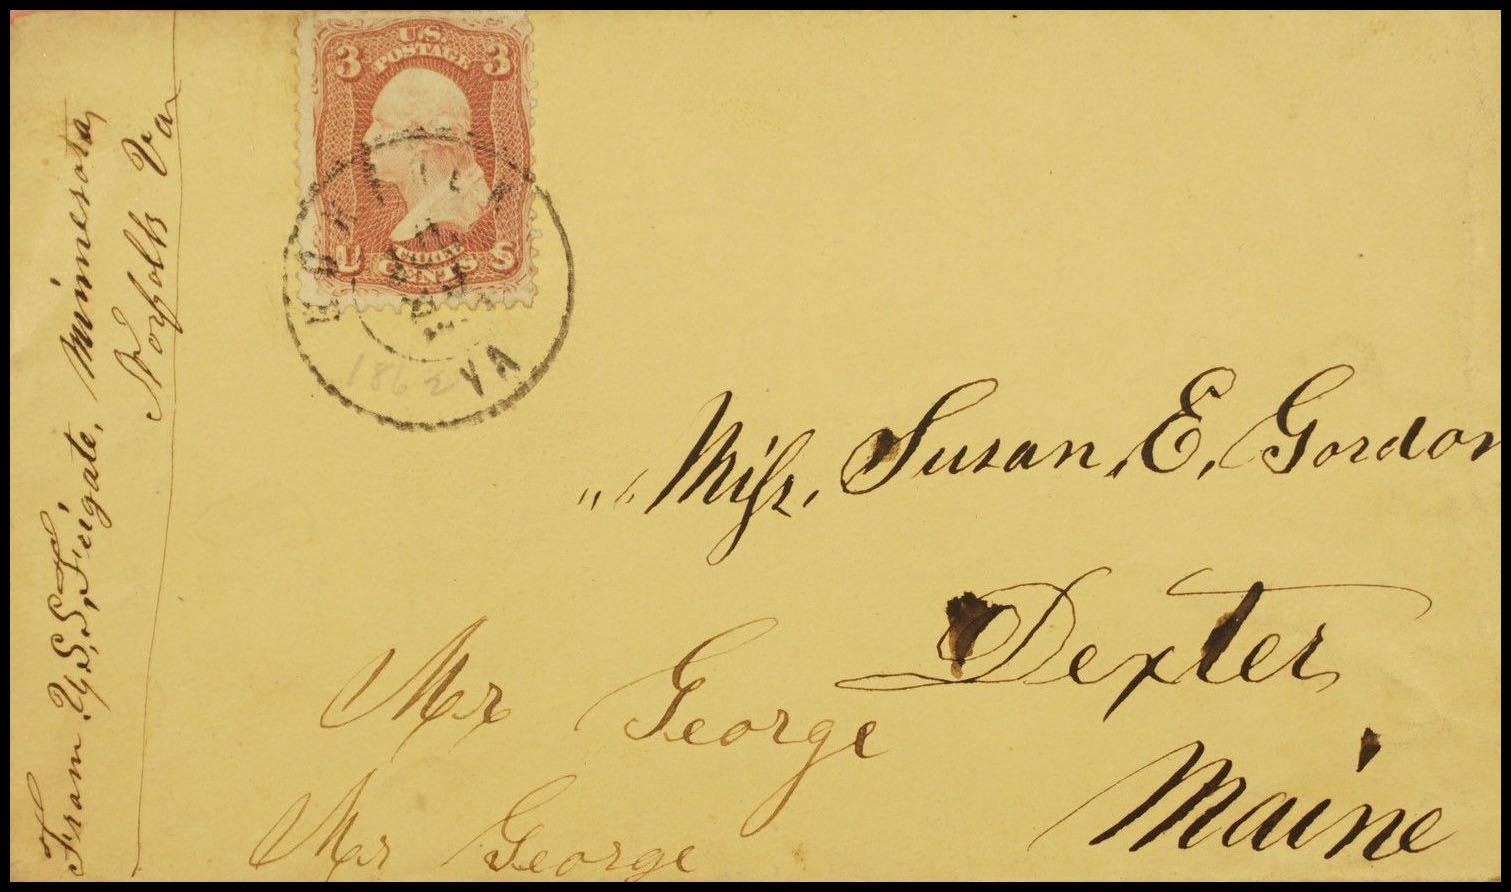 From. U.S.S. Frigate, Minnesota,
Norfolk Va
3 U.S. 3
POSTAGE
U S
THREE
CENTS
NORFOLK
VA
1862
"" Miss, Susan, E, Gordon
Dexter
Maine
Mr George
Mr George